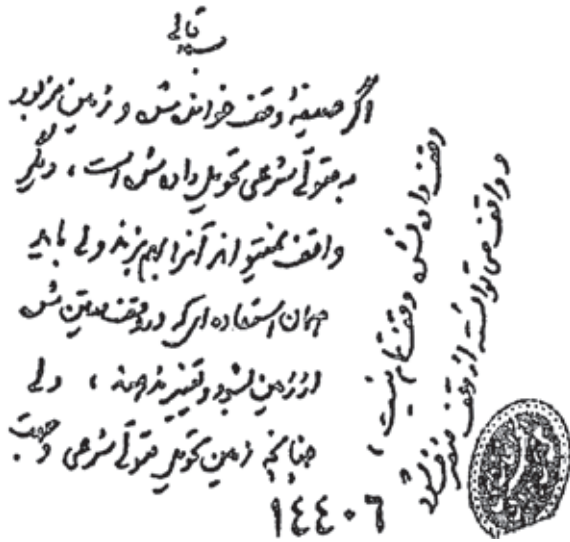 بسمه تعالی
اگر صیغهٔ وقف خوانده شده و زمین مزبور
به متولّی شرعی تحویل داده شده است، دیگر
واقف نمیتواند آنرا بهم بزند ولی باید
همان استفاده‌ای که در وقف معین شده
از زمین بشود و تغییر ندهند، ولی
چنانچه زمین تحویل متولّی شرعی و جهت
وقف داده نشده وقف تمام نیست،
و واقف می‌توانسته از وقف منصرف شود
١٤٤٠٦